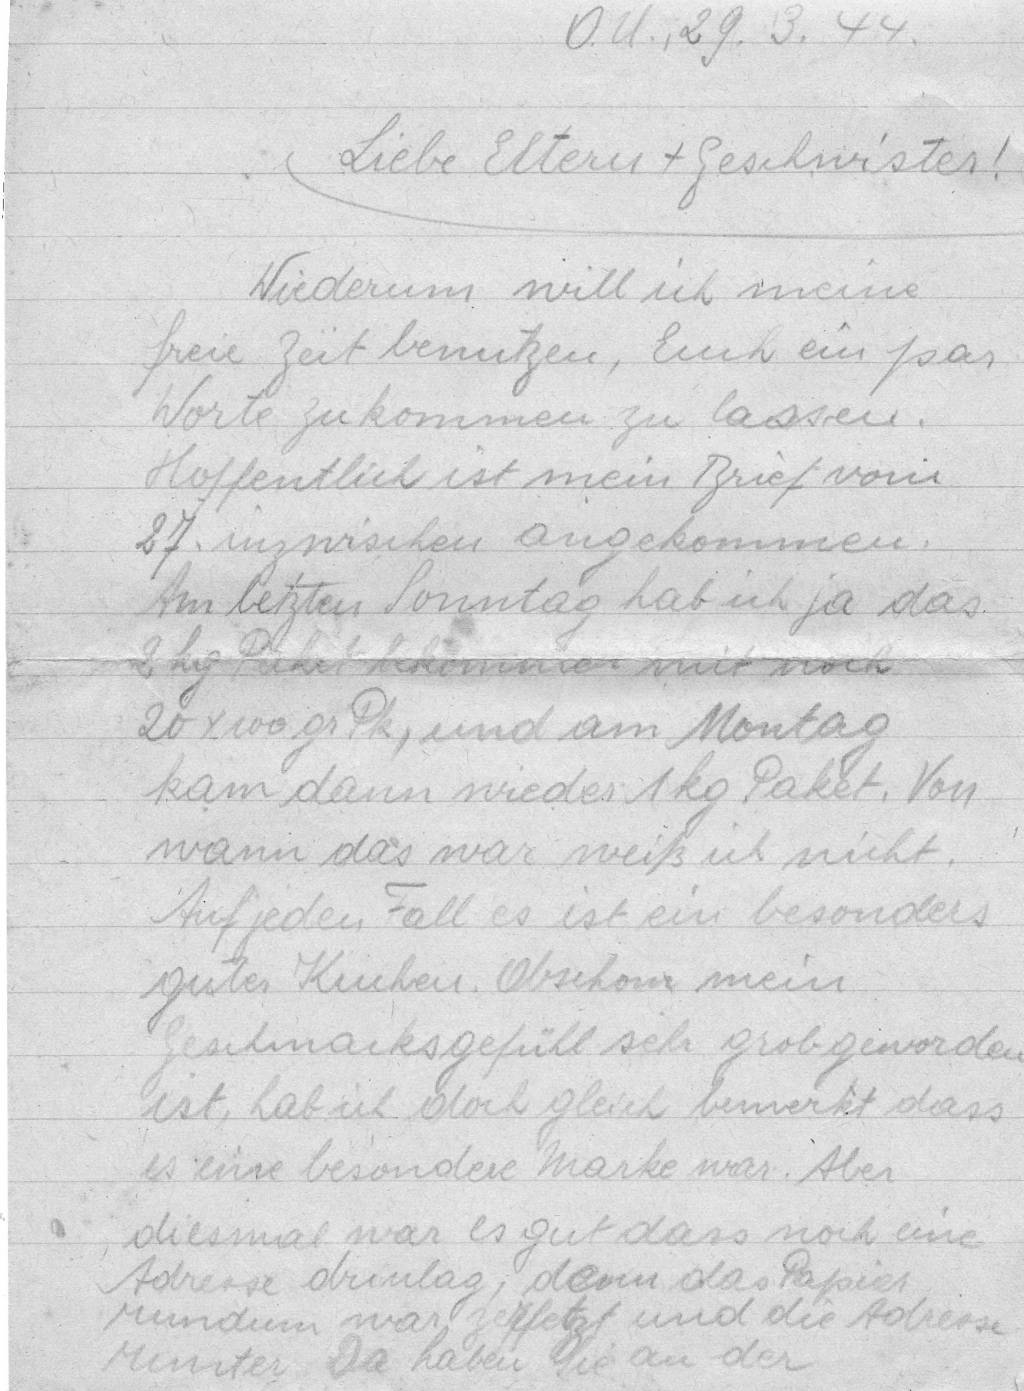 O.U., 29. 3. 44.
Liebe Eltern + Geschwister!
Wiederum will ich meine
freie Zeit benutzen, Euch ein par
Worte zukommen zu lassen.
Hoffentlich ist mein Brief vom
27. inzwischen angekommen.
Am letzten Sonntag hab ich ja das
2 kg Paket bekommen mit noch
20 x 100 gr Pk, und am Montag
kam dann wieder 1 kg Paket. Von
wann das war weiß ich nicht.
Auf jeden Fall es ist ein besonders
guter Kuchen. Obschon mein
Geschmacksgefühl sehr grob geworden
ist, hab ich doch gleich bemerkt dass
es eine besondere Marke war. Aber
diesmal war es gut dass noch eine
Adresse drinlag, denn das Papier
rundum war zerfetzt und die Adresse
runter. Da haben Sie an der